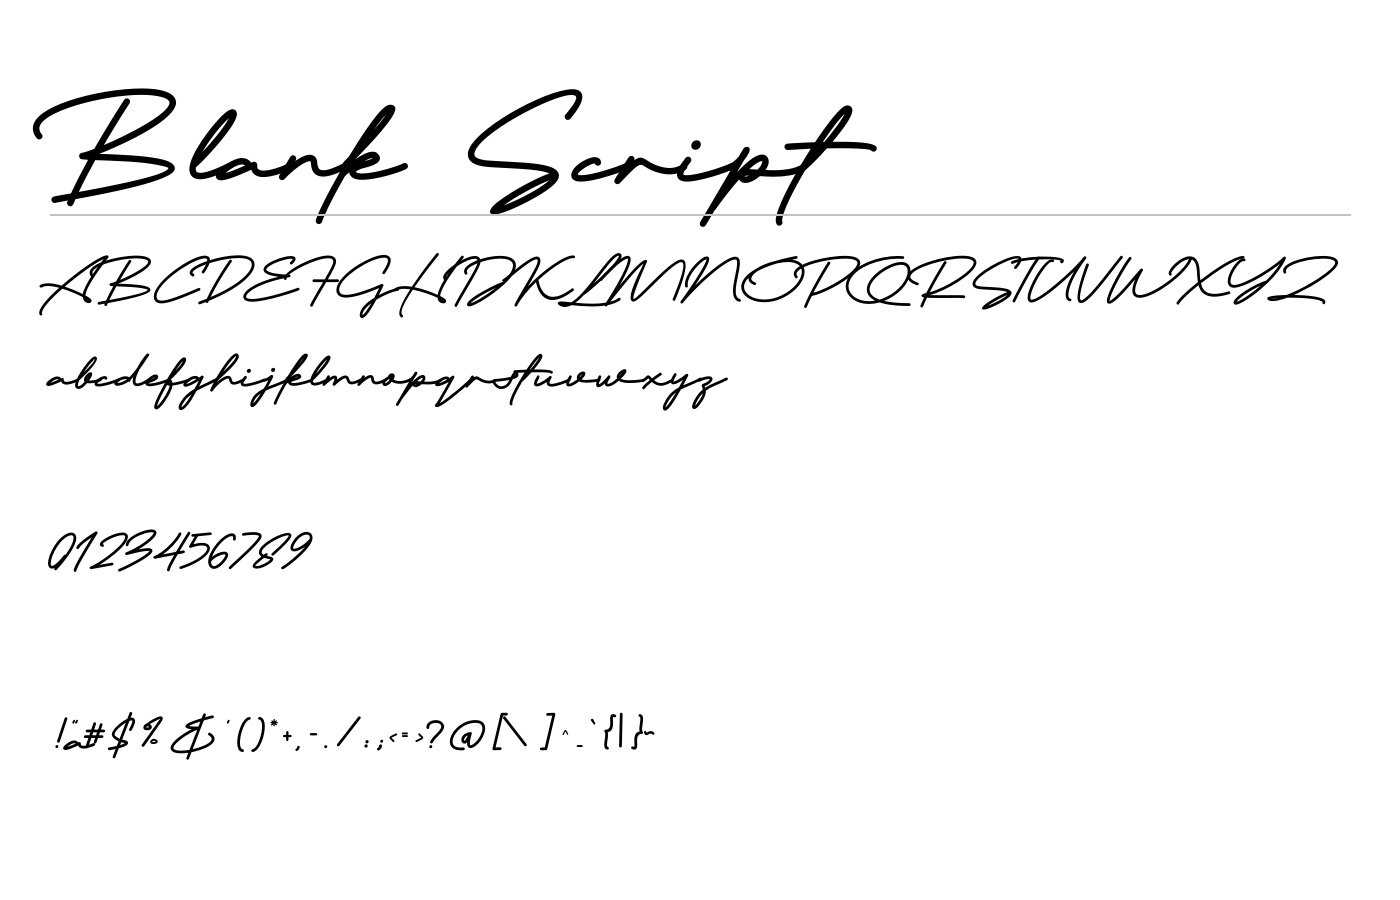 Blank Script
ABCDEFGHIJKLMNOPQRSTUVWXYZ
abcdefghijklmnopqrstuvwxyz
0123456789
!"a#$%&'()*+,-./:;<=>?@[\]^_`{|}~